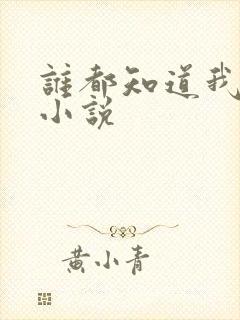 誰都知道我
小説
黄小青